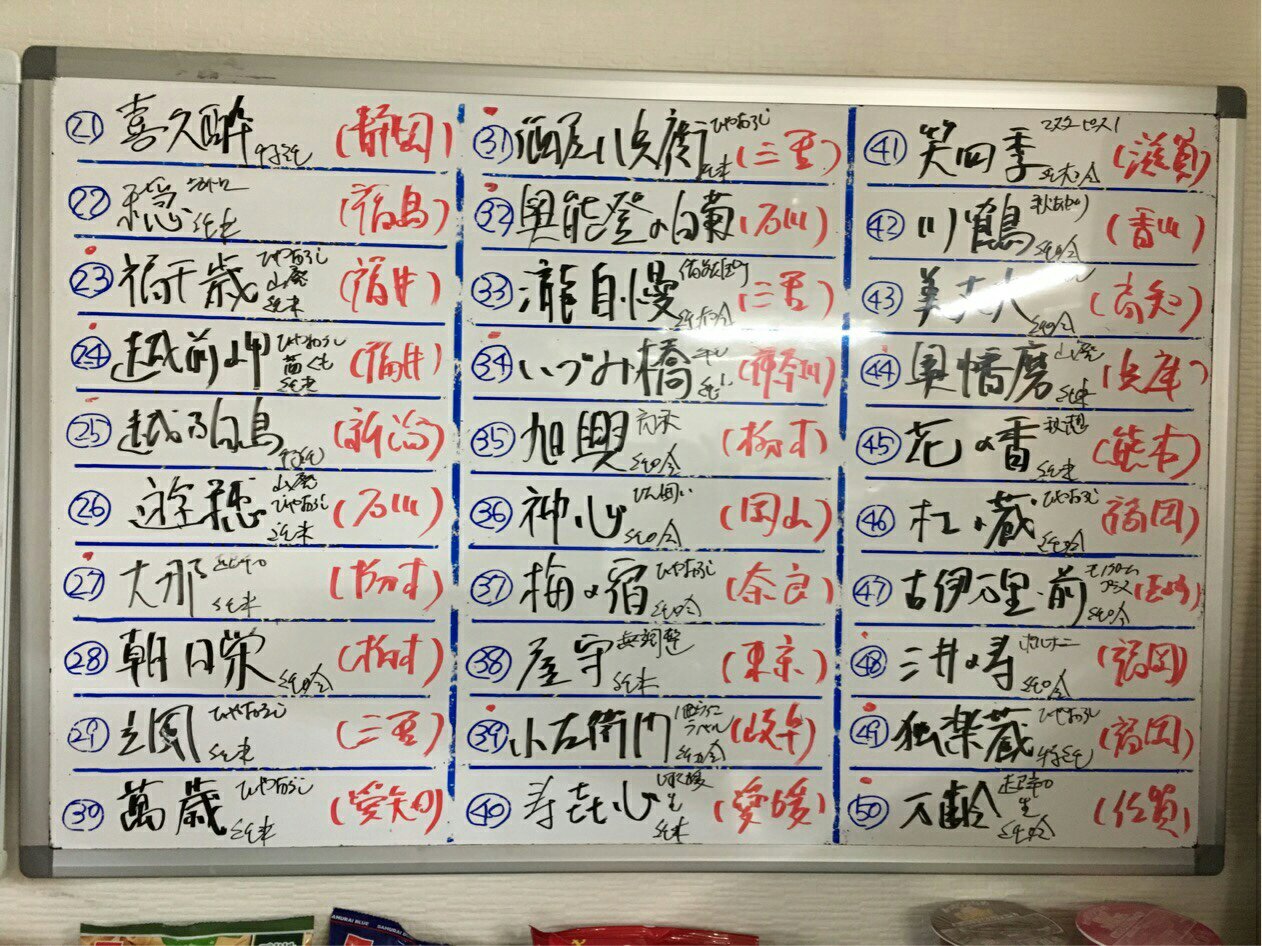 ㉑ 喜久酔 特純 (静岡)
㉒ 穏 純米 (福島)
㉓ 福千歳 ひやおろし 山廃 純米 (福井)
㉔ 越前岬 ひやおろし 純米 (福井)
㉕ 越乃白鳥 特純 (新潟)
㉖ 遊穂 山廃 ひやおろし 純米 (石川)
㉗ 大那 超辛口 純米 (栃木)
㉘ 朝日栄 純吟 (栃木)
㉙ ひやおろし 純米 (三重)
㉚ 萬歳 ひやおろし 純米 (愛知)
㉛ 酒屋八兵衛 ひやおろし 純米 (三重)
㉜ 奥能登の白菊 (石川)
㉝ 瀧自慢 (三重)
㉞ いづみ橋 (神奈川)
㉟ 旭興 純吟 (栃木)
㊱ 神心 純吟 (岡山)
㊲ 梅の宿 ひやおろし 純吟 (奈良)
㊳ 屋守 無調整 純米 (東京)
㊴ 小左衛門 (岐阜)
㊵ 寿喜心 生 純米 (愛媛)
㊶ 笑四季 マスターピース (滋賀)
㊷ 川鶴 秋あがり 純吟 (香川)
㊸ 美丈夫 純吟 (高知)
㊹ 奥播磨 山廃 純米 (兵庫)
㊺ 花の香 純米 (熊本)
㊻ 杜の蔵 ひやおろし 純吟 (福岡)
㊼ 古伊万里 前 純吟
㊽ 三井の寿 ポルチーニ 純吟 (福岡)
㊾ 独楽蔵 ひやおろし 特純 (福岡)
㊿ 万齢 超辛口 生 純吟 (佐賀)
SAMURAI BLUE